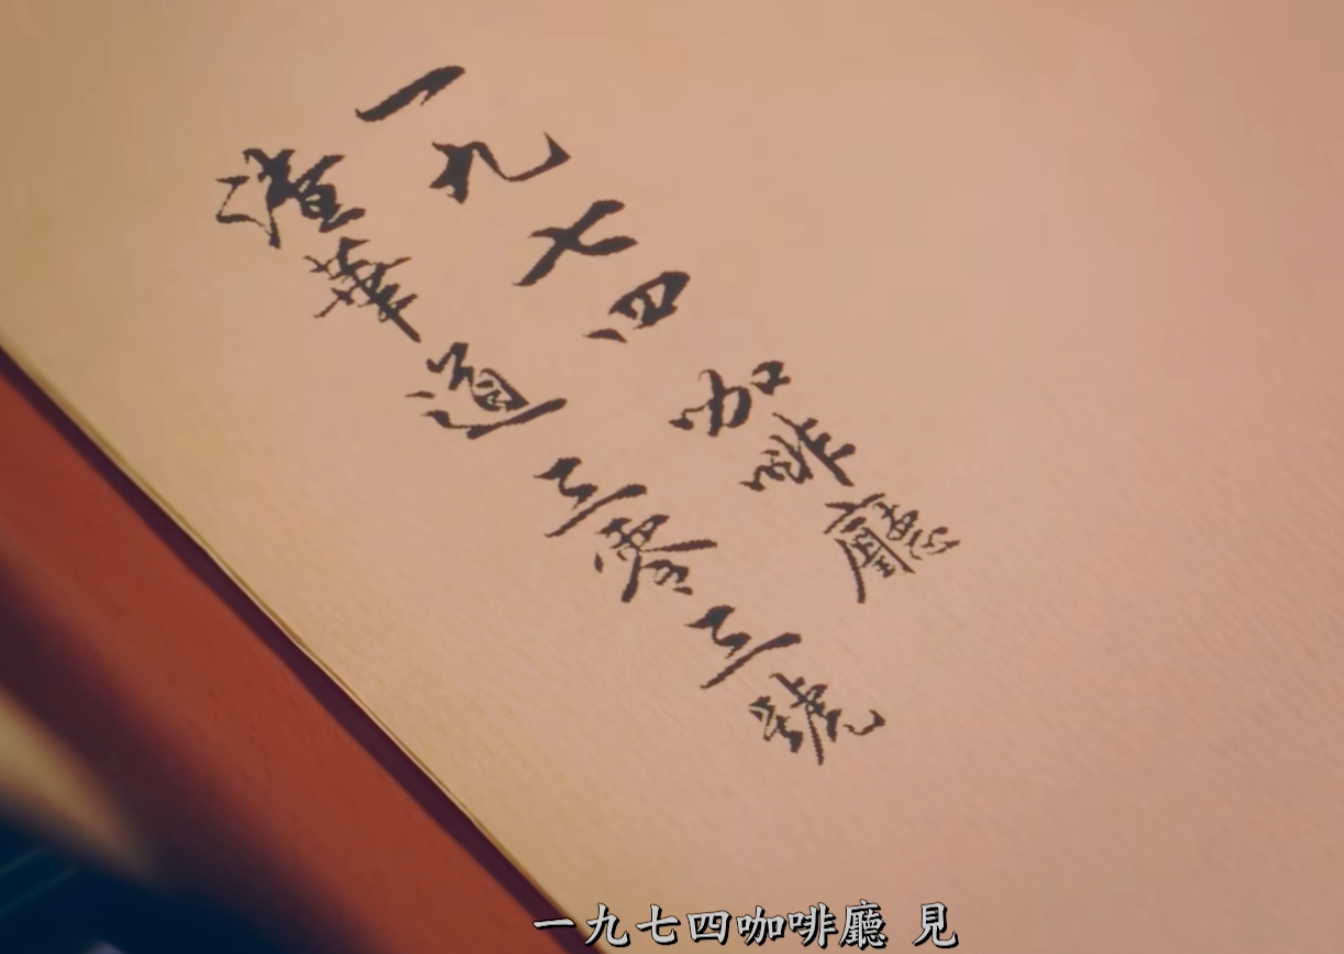 一九七四咖啡廳
華道三零三號
一九七四咖啡廳 見